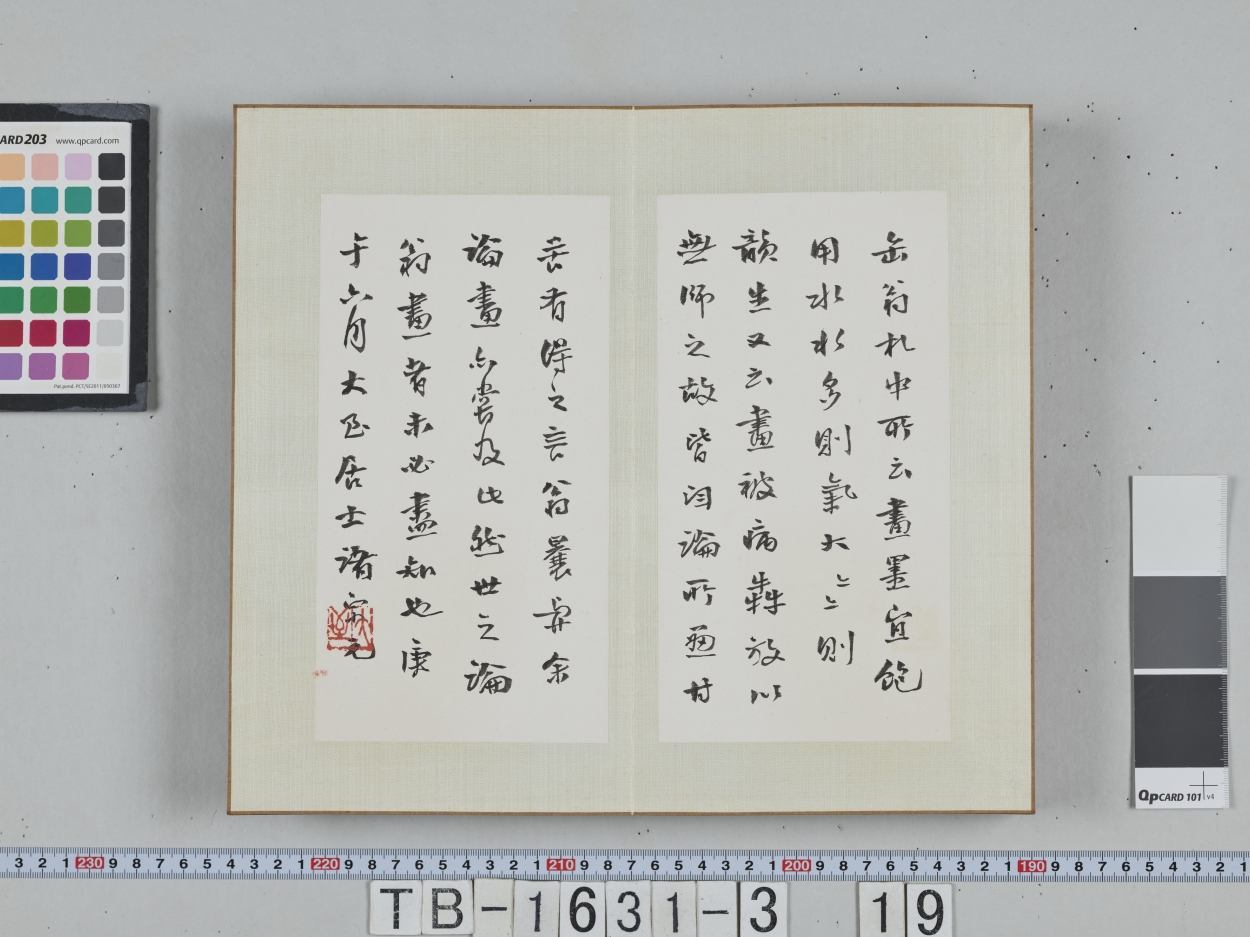 缶翁札中所云畫墨宜飽
用水水多則氣大〻〻則
韻生又云畫被病犇放以
無師之故皆洵論所
者有得之言翁曩與余
論畫亦嘗及此然世之論
翁畫者未必盡知也庚
午六月大至居士諸宗元
CARD203 www.qpcard.com
Pat.pend. PCT/SE2011/050367
QpCARD 101 v4
3 2 1 230 9 8 7 6 5 4 3 2 1 220 9 8 7 6 5 4 3 2 1 210 9 8 7 6 5 4 3 2 1 200 9 8 7 6 5 4 3 2 1 190 9 8 7 6 5 4 3 2 1
TB-1631-3 19